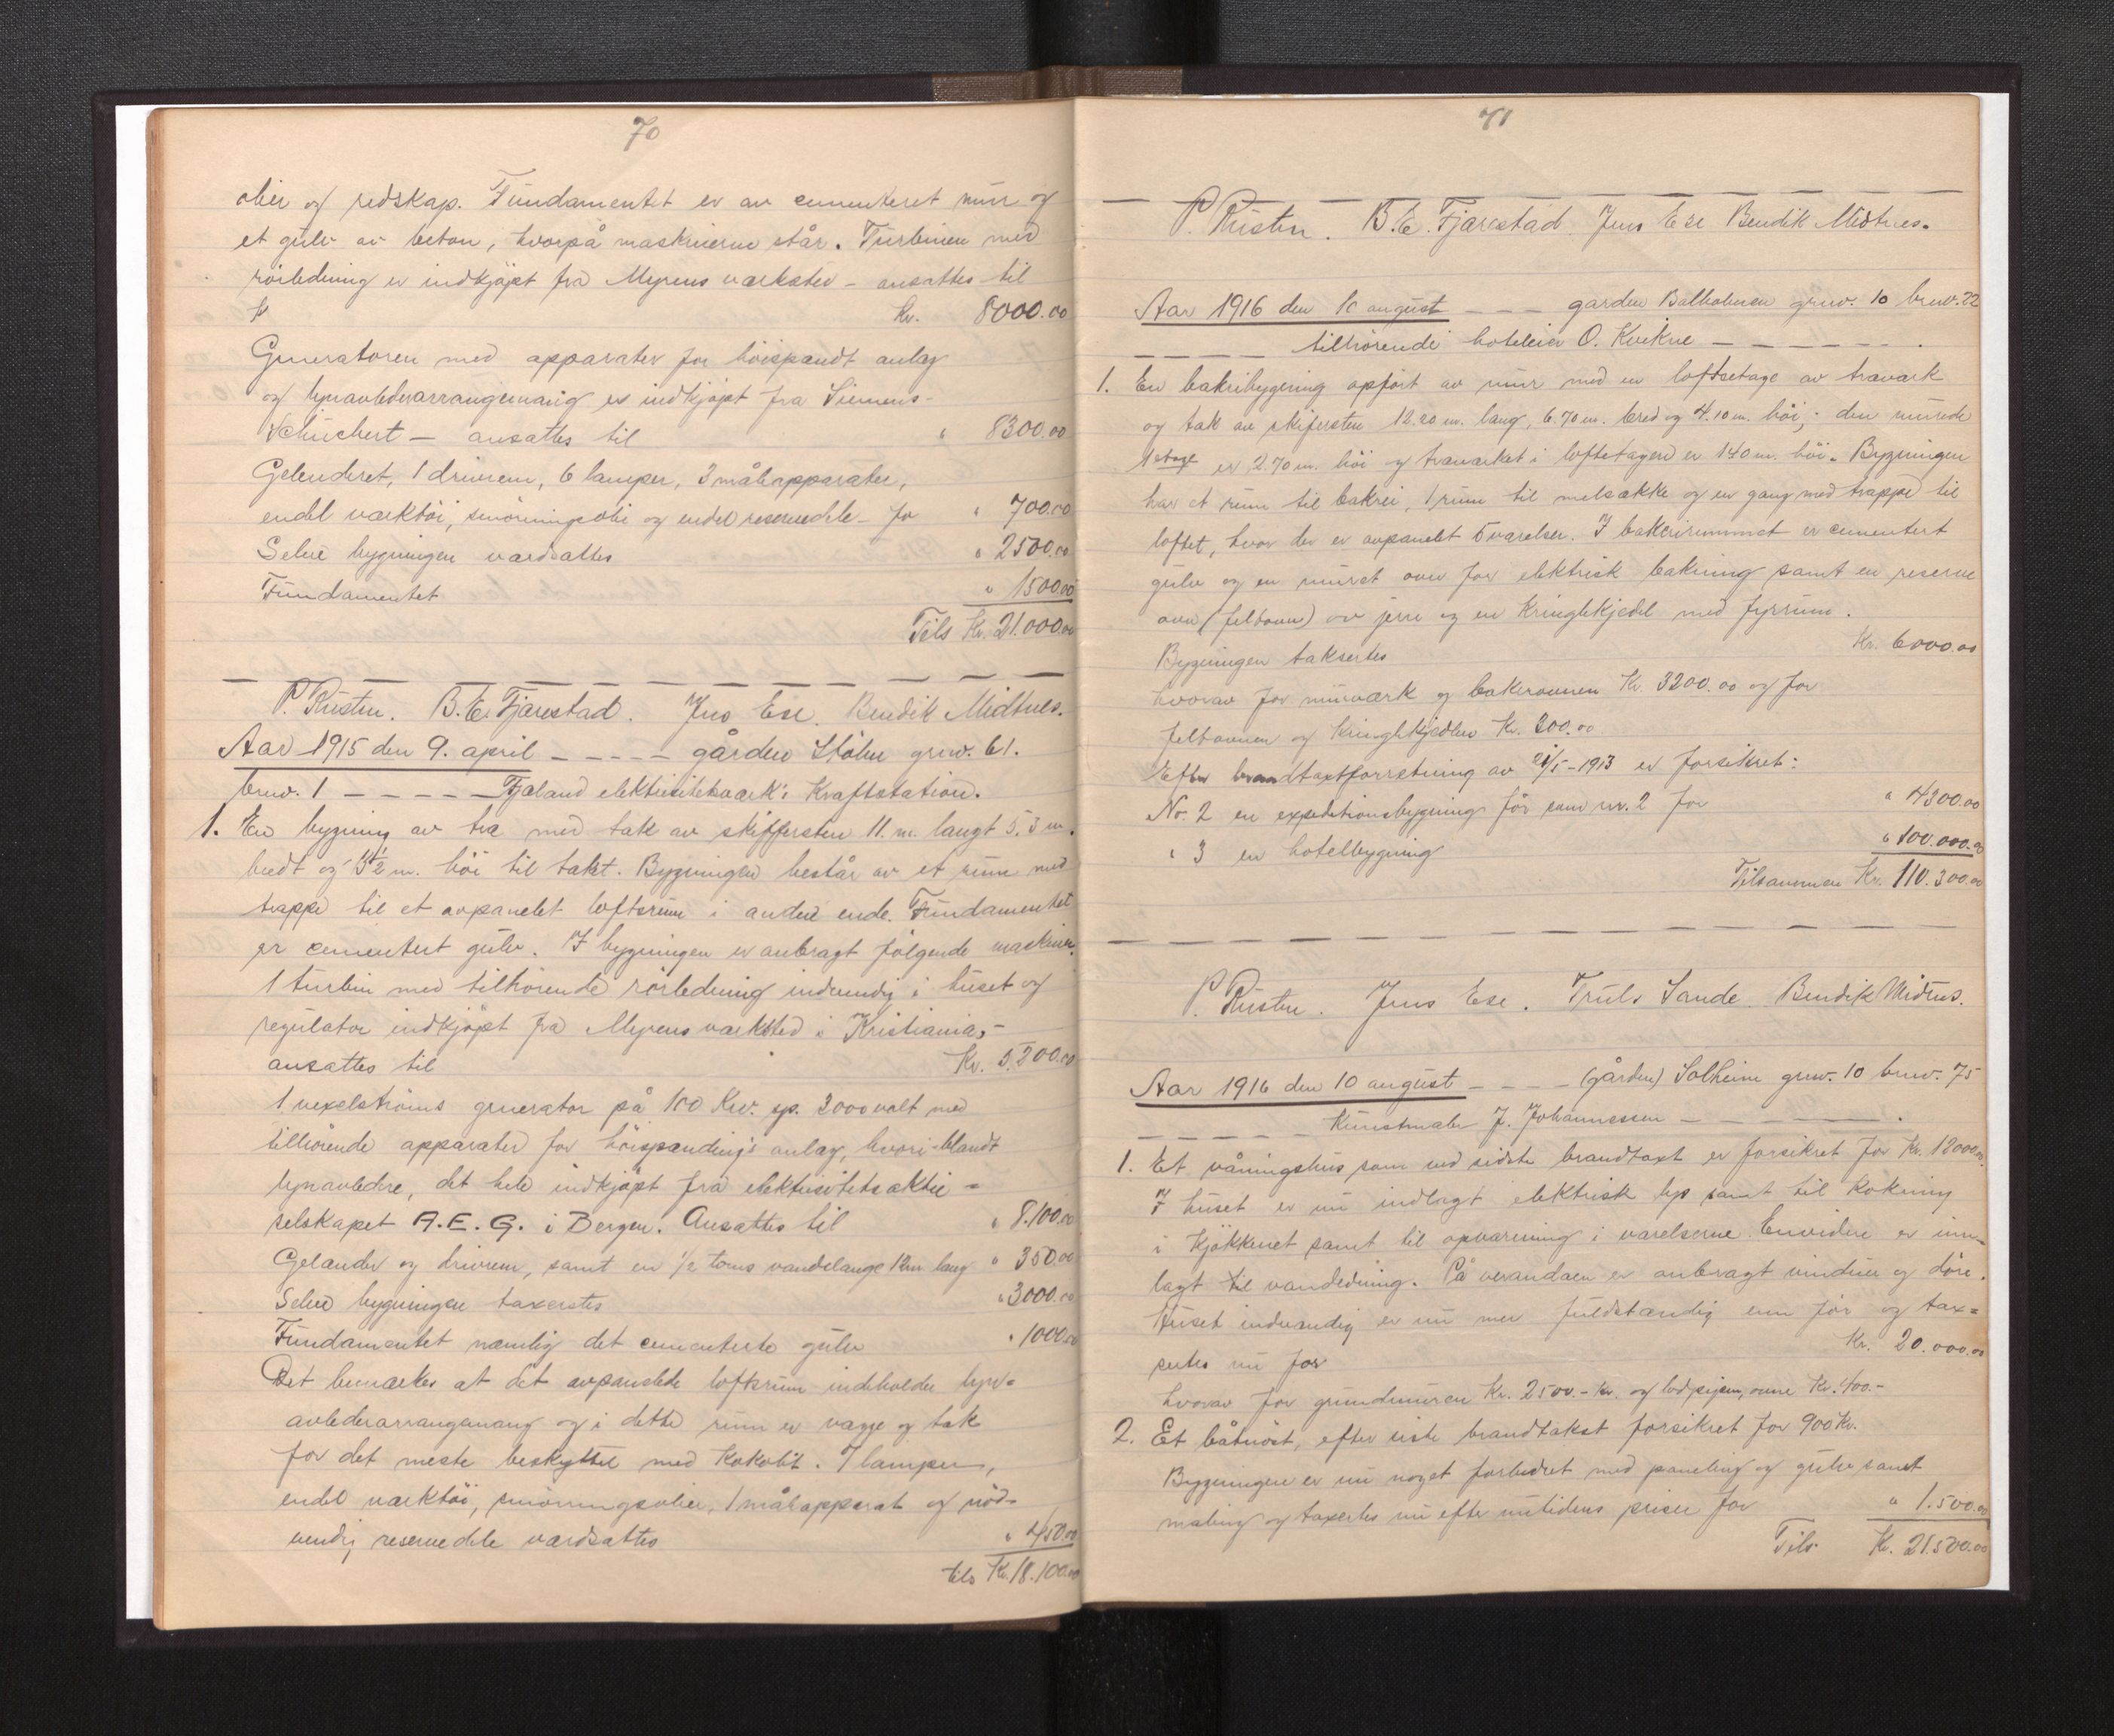 70
olier og redskap. Fundamentet er av cementeret mur og
et gulv av beton, hvorpå maskinerne står. Turbinen med
rörledning er indkjöpt fra Myrens værksted – ansættes til
kr. 8000.00
Generatoren med apparater for höispændt anlæg
og lynavlederarrangemang er indkjöpt fra Siemens-
Schuchert – ansættes til " 8300.00
Gelenderet, 1 drivrem, 6 lamper, 3 måleapparater,
endel værktöi, smörningsolie og endel reservedele – for " 700.00
Selve bygningen værdsættes " 2500.00
Fundamentet " 1500.00
Tils Kr. 21.000.00
P. Rusten. B. E. Fjærestad. Jens Ese. Bendik Midtnes.
Aar 1915 den 9. april – – – – gården Stölen grnv. 61.
brnv. 1 – – – – – Fjæland elektrisitetsværk's Kraftstation.
1. En bygning av træ med tak av skiffersten 11. m. langt 5.3 m.
bredt og 3 1/2 m. höi til taket. Bygningen består av et rum med
trappe til et avpanelet loftsrum i andre ende. Fundamentet
er cementert gulv. I bygningen er anbragt fölgende maskiner.
1 turbin med tilhörende rörledning indvendig i huset og
regulator indkjöpt fra Myrens værksted i Kristiania, –
ansættes til Kr. 5.200.00
1 vexelströms generator på 100 Kw. sp. 3000 volt med
tilhörende apparater for höispændings anlæg, hvori-blandt
lynavledere, det hele indkjöpt fra elektrisitetsaktie-
selskapet A.E.G. i Bergen. Ansættes til " 8.100.00
Gelænder og drivrem, samt en 1/2 toms vandslange 12m lang " 350.00
Selve bygningen taxerstes " 3000.00
Fundamentet nemlig det cementerte gulv " 1000.00
Det bemærkes at det avpanelede loftsrum indeholder lyn-
avlederarrangemang og i dette rum er vægge og tak
for det meste beskyttet med Kokolit. 7 lamper,
endel værktöi, smörningsolier, 1 måleapparat og nöd-
vendig reservedele værdsættes " 450.00
tils Kr. 18.100.00
71
P. Rusten. B. E. Fjærestad. Jens Ese Bendik Midtnes.
Aar 1916 den 10 august – – – garden Balholmen grnv. 10 brnv. 22
– – – – – tilhörende hoteleier O. Kvikne – – – – – – .
1. En bakeribygning opfört av mur med en loftsetage av træværk
og tak av skifersten 12.20 m. lang, 6.70 m. bred og 4.10 m. höi; den murede
1 etage er 2.70 m. höi og træværket i loftetagen er 1.40 m. höi. Bygningen
har et rum til bakeri, 1 rum til melsække og en gang med trappe til
loftet, hvor der er avpanelet 5 værelser. I bakerirummet er cementert
gulv og en muret oven for elektrisk bakning samt en reserve
oven (feltoven) av jern og en Kringlekjedel med fyrrum.
Bygningen taksertes Kr. 6000.00
hvorav for murværk og bakerovnen Kr. 3200.00 og for
feltovnen og Kringlekjedlen Kr. 300.00
Efter brandtaxtforretning av 21/5-1913 er forsikret:
No. 2 en expeditionsbygning för som nr. 2 for " 4300.00
" 3 en hotelbygning " 100.000.00
Tilsammen Kr. 110.300.00
P. Rusten. Jens Ese. Truls Sande. Bendik Midtnes.
Aar 1916 den 10 august – – – – (gården) Solheim grnv. 10 brnv. 75
– – – – – Kunstmaler J. Johannessen – – – – – .
1. Et våningshus som ved sidste brandtaxt er forsikret for Kr. 12000.00.
I huset er nu indlagt elektrisk lys samt til kokning
i kjökkenet samt til opvarming i værelserne. Envidere er inn-
lagt til vandledning. På verandaen er anbragt vinduer og döre.
Huset indvendig er nu mer fuldstændig enn för og tax-
sertes nu for Kr. 20.000.00
hvorav for grundmuren Kr. 2500.- kr. og ovne Kr. 400.-
2. Et båtnöst, efter siste brandtakst forsikret for 900 Kr.
Bygningen er nu noget forbedret med paneling og gulv samt
maling og taxertes nu efter nutidens priser for " 1.500.00
Tils. Kr. 21.500.00